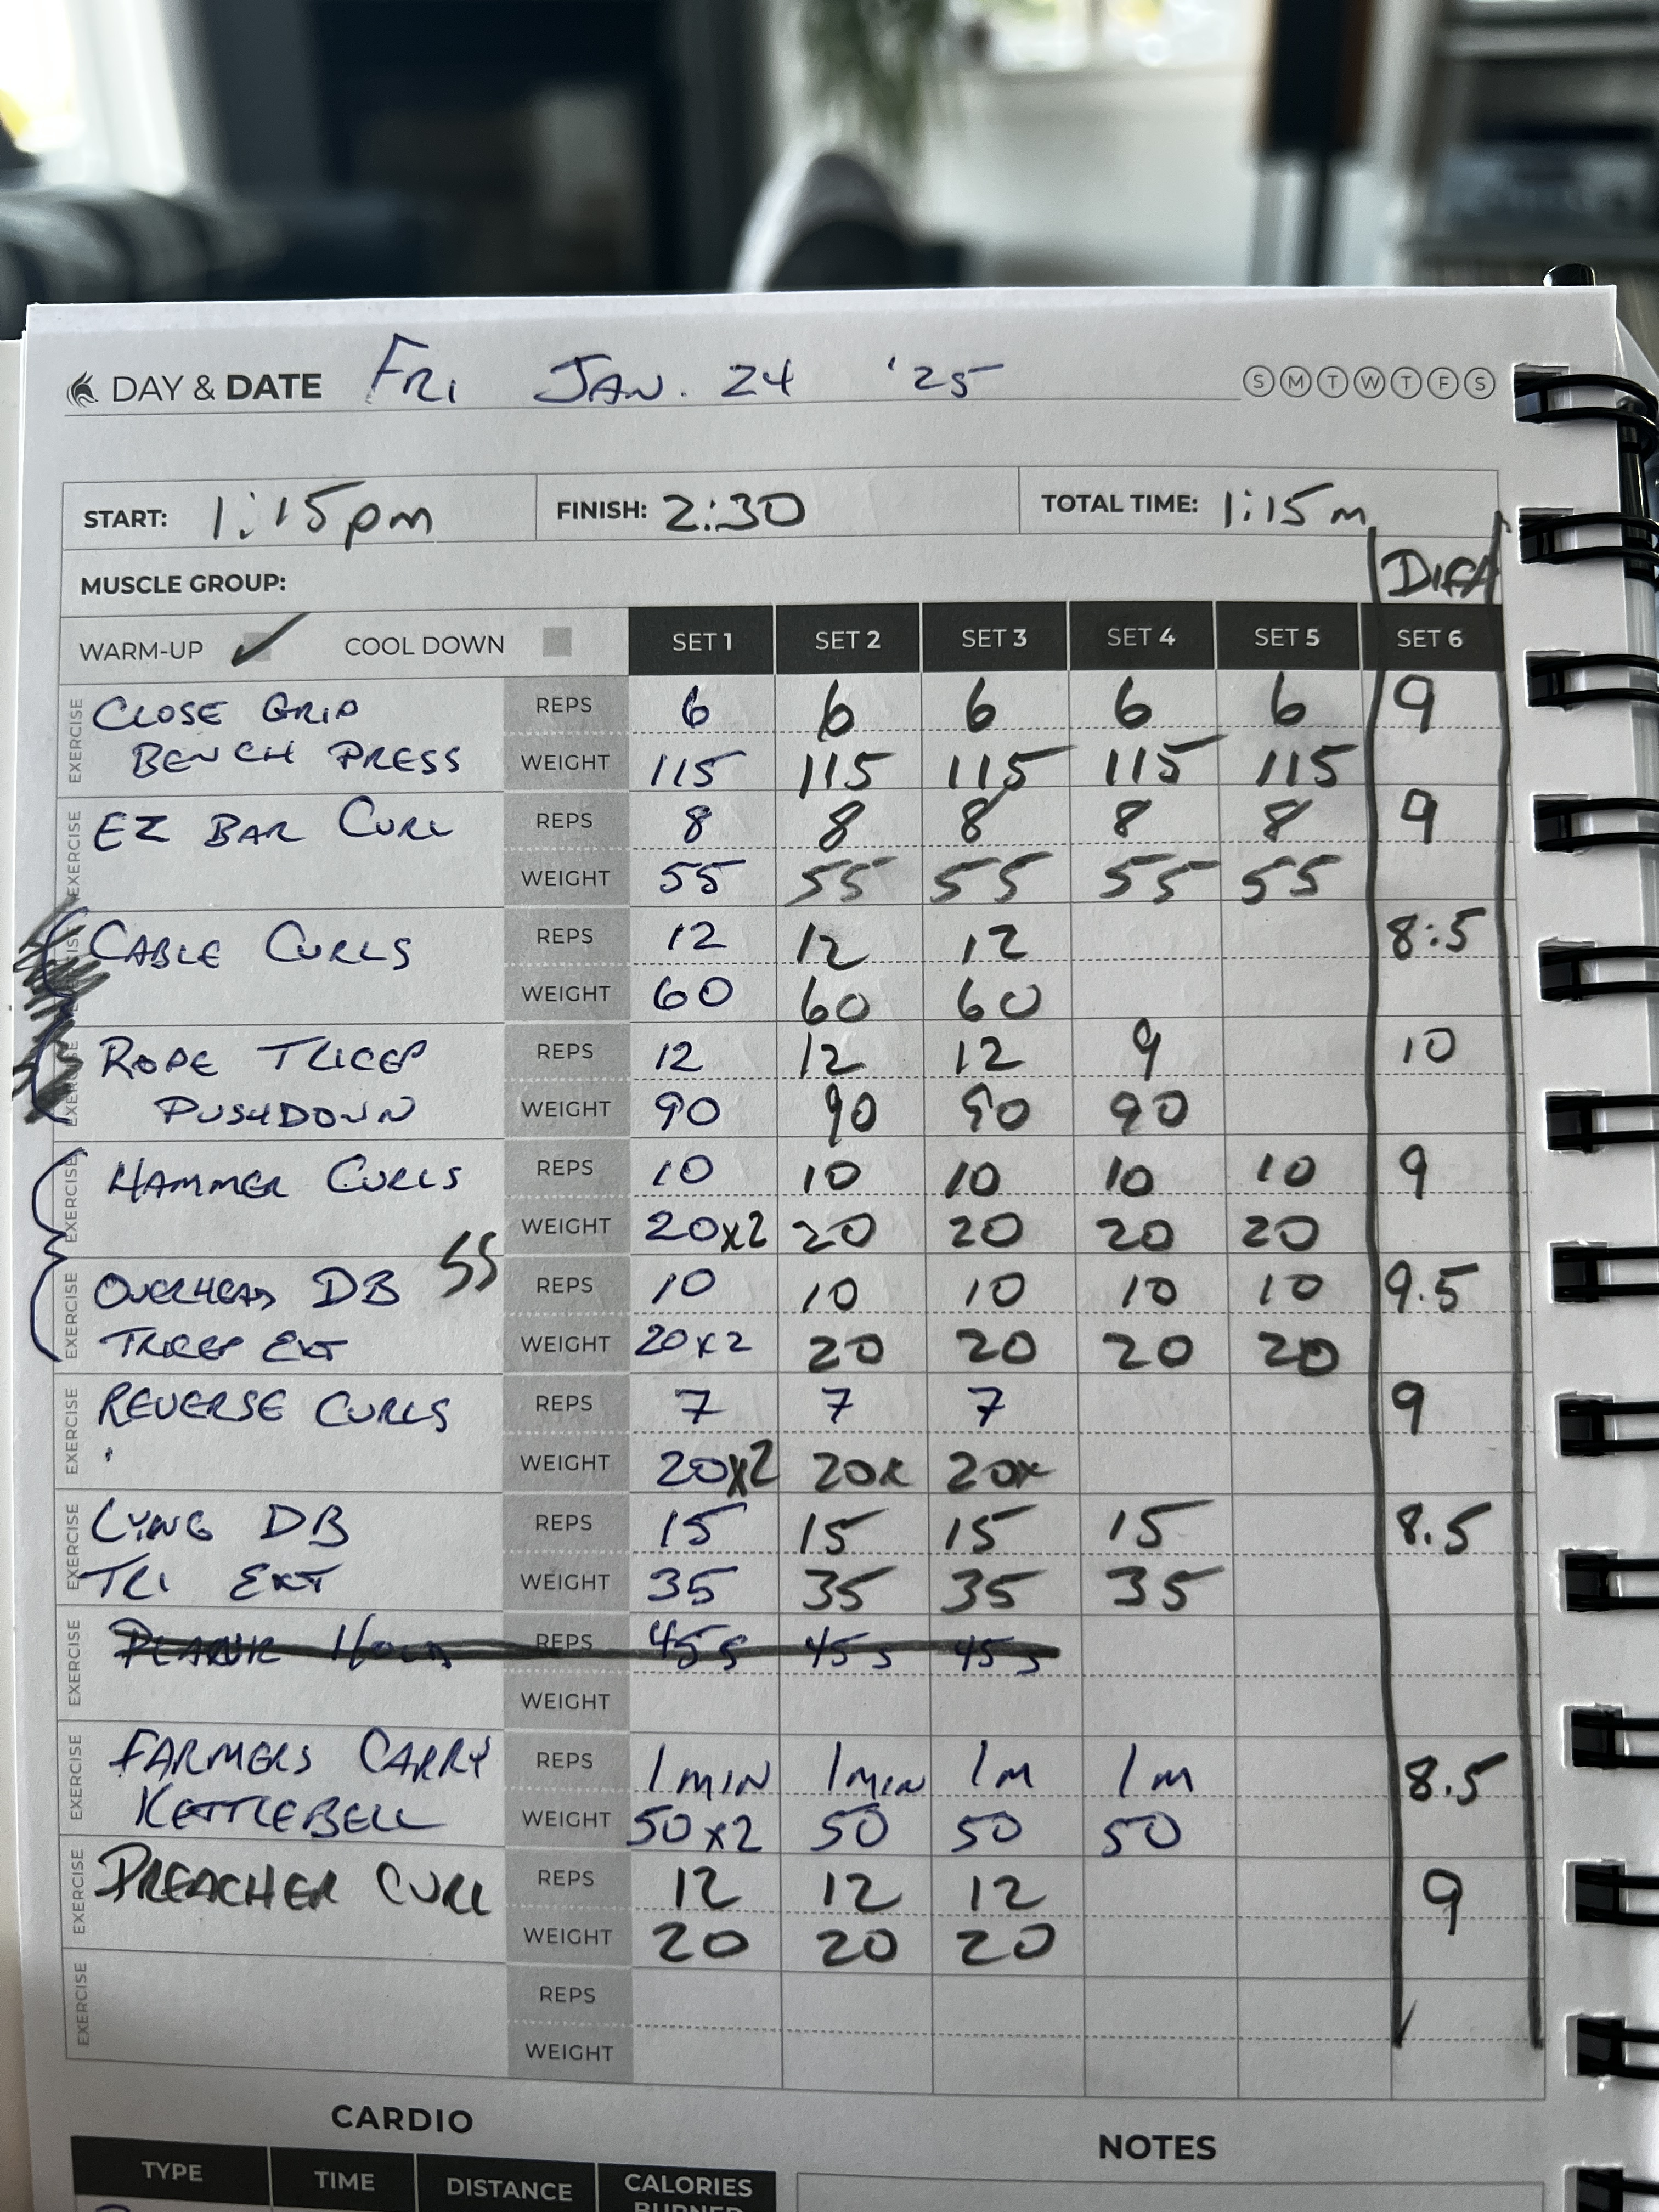 DAY & DATE FRI JAN. 24 '25 S M T W T F S
START: 1:15pm FINISH: 2:30 TOTAL TIME: 1:15m
MUSCLE GROUP: DIFF
WARM-UP COOL DOWN SET 1 SET 2 SET 3 SET 4 SET 5 SET 6
EXERCISE CLOSE GRIP REPS 6 6 6 6 6 9
BENCH PRESS WEIGHT 115 115 115 115 115
EXERCISE EZ BAR CURL REPS 8 8 8 8 8 9
WEIGHT 55 55 55 55 55
CABLE CURLS REPS 12 12 12 8.5
WEIGHT 60 60 60
EXERCISE ROPE TRICEP REPS 12 12 12 9 10
PUSHDOWN WEIGHT 90 90 90 90
EXERCISE HAMMER CURLS REPS 10 10 10 10 10 9
WEIGHT 20x2 20 20 20 20
SS
EXERCISE OVERHEAD DB REPS 10 10 10 10 10 9.5
TRICEP EXT WEIGHT 20x2 20 20 20 20
EXERCISE REVERSE CURLS REPS 7 7 7 9
WEIGHT 20x2 20x 20x
EXERCISE LYING DB REPS 15 15 15 15 8.5
TRI EXT WEIGHT 35 35 35 35
EXERCISE PLANK HOLD REPS 45s 45s 45s
WEIGHT
EXERCISE FARMERS CARRY REPS 1 MIN 1 MIN 1 M 1 M 8.5
KETTLEBELL WEIGHT 50x2 50 50 50
EXERCISE PREACHER CURL REPS 12 12 12 9
WEIGHT 20 20 20
EXERCISE REPS
WEIGHT
CARDIO NOTES
TYPE TIME DISTANCE CALORIES
BURNED